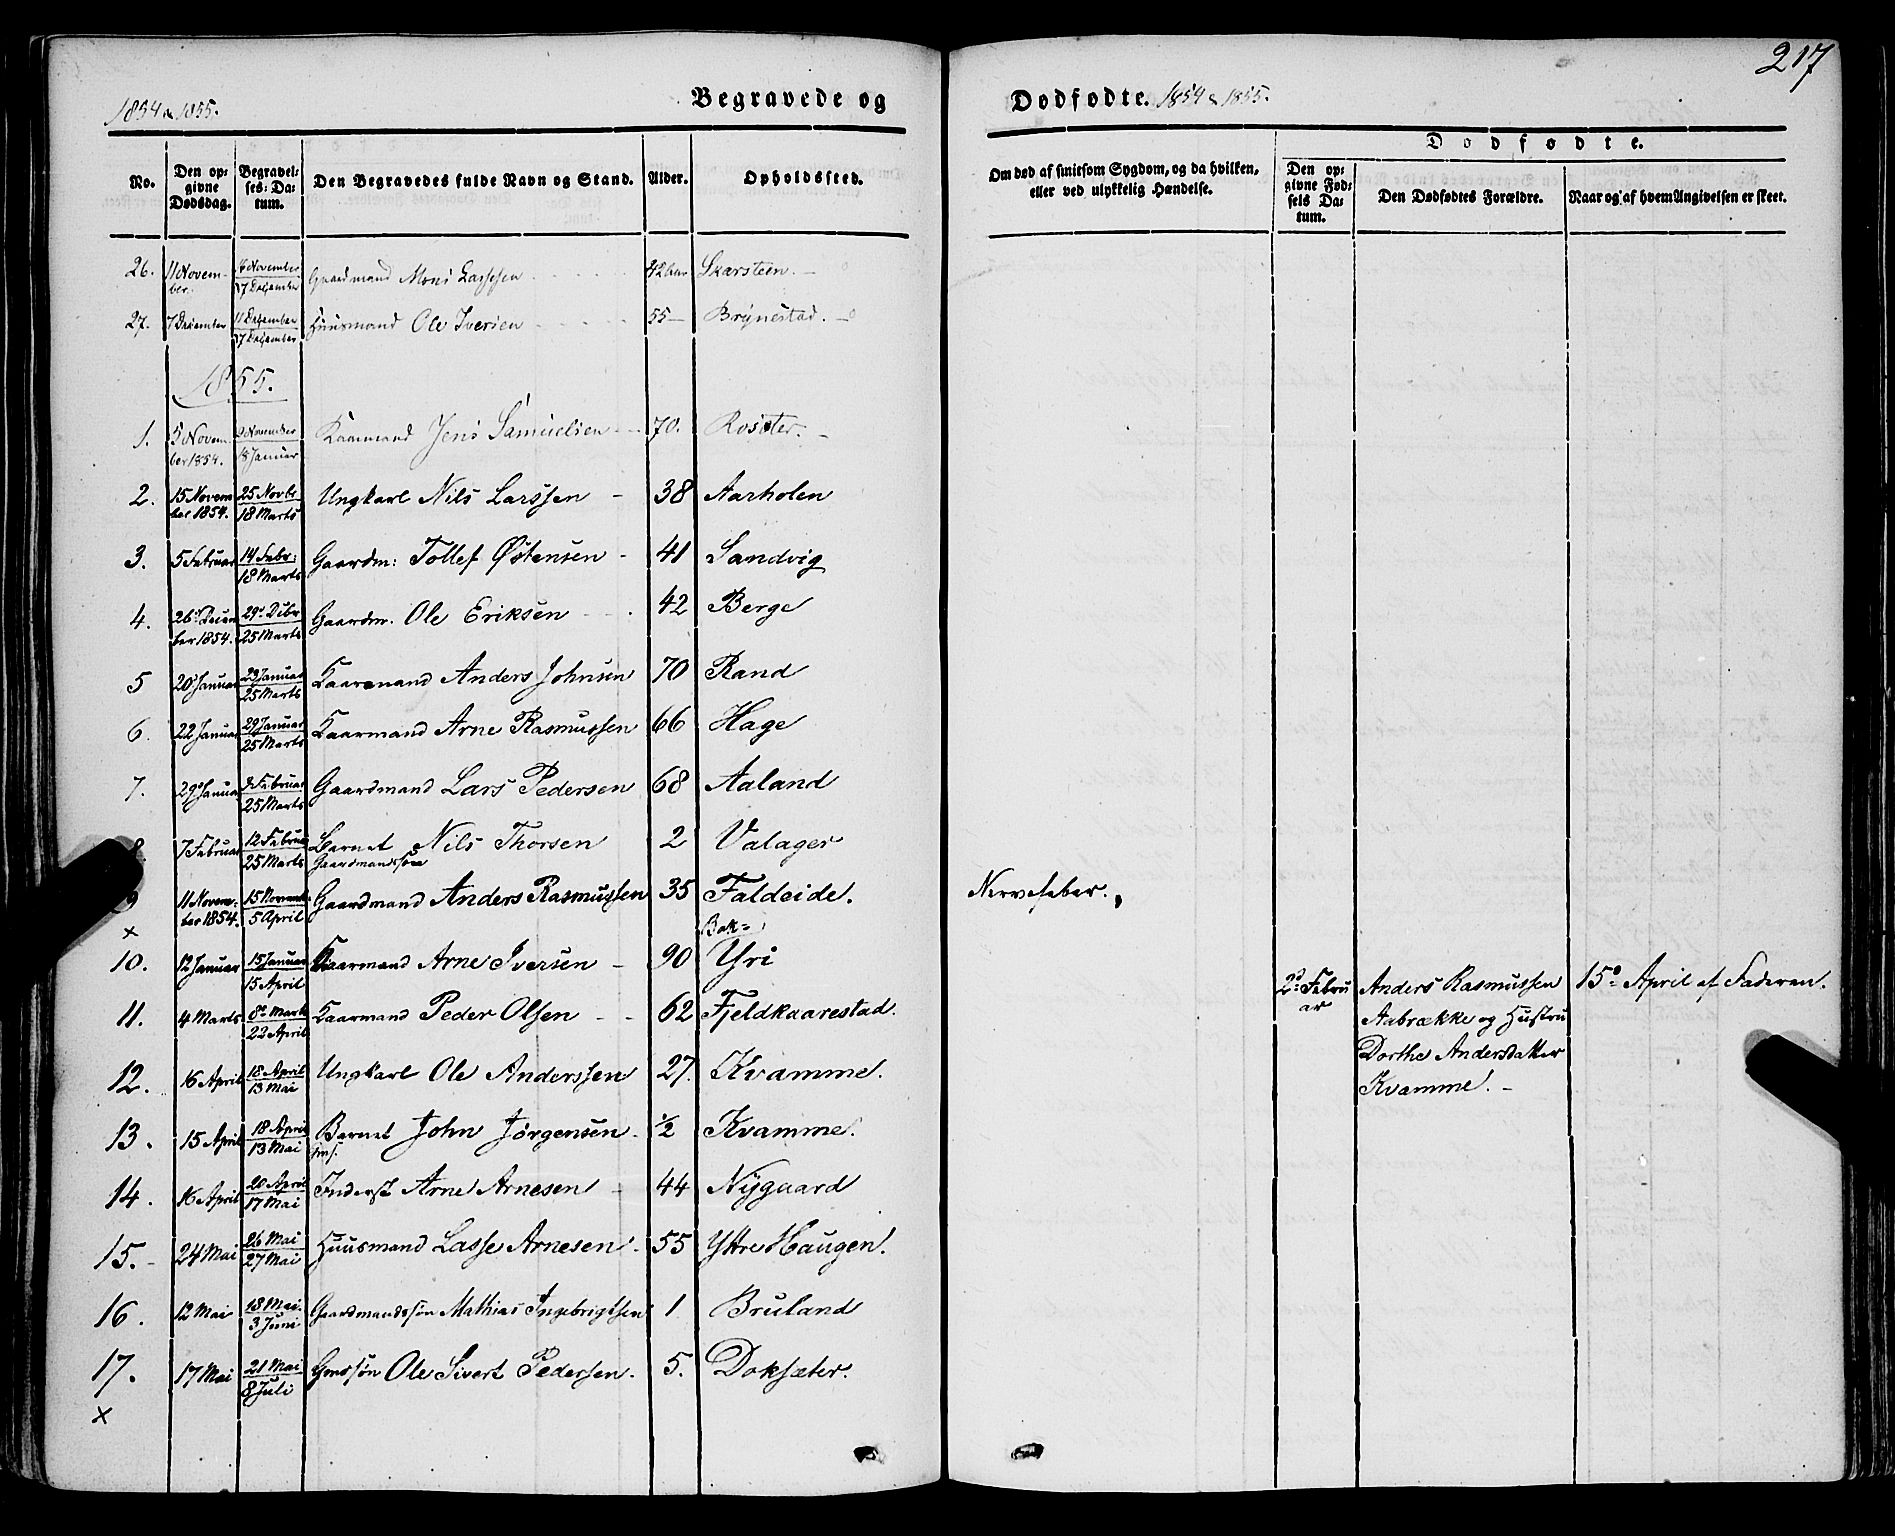 217
1854 & 1855.
Begravede og
Dødfødte. 1854 & 1855.
No.
Den opgivne Dødsdag.
Begravelses-Datum.
Den Begravedes fulde Navn og Stand.
Alder.
Opholdssted.
Om død af smitsom Sygdom, og da hvilken, eller ved ulykkelig Hændelse.
Dødfødte.
Den opgivne Fødsels Datum.
Den Dødfødtes Forældre.
Naar og af hvem Angivelsen er skeet.
26. 11 November. November 17 December Gaardmand Mons Lassesen 42 Skarsteen.
27. 7 December 11 December 17 December Huusmand Ole Iversen 55 Brynestad.
1855.
1. 5 November 1854. 9 November 18 Januar Kaarmand Jens Samuelsen 70. Rosæter.
2. 15 November 1854. 25 Novbr 18 Marts Ungkarl Nils Larssen 38 Aarholen
3. 5 Februar 14 Febr: 18 Marts Gaardm: Tollef Østensen 41 Sandvig
4. 26 December 1854. 29 Dcbr 25 Marts Gaardm. Ole Eriksen 42 Berge
5 20 Januar 29 Januar 25 Marts Kaarmand Anders Johnsen 70 Rand
6. 22 Januar 29 Januar 25 Marts Kaarmand Arne Rasmussen 66 Hage
7. 29 Januar Februar 25 Marts Gaardmand Lars Pedersen 68 Aaland
8 7 Februar 12 Februar 25 Marts Barnet Nils Thorsen 2 Valager
Gaardmandssøn
9 11 November 1854. 15 Novemb 5 April Gaardmand Anders Rasmussen 35 Faldeide. Nervefeber.
x
Bak=
10. 12 Januar 15 Januar 15 April Kaarmand Arne Iversen 90 Yri
11. 4 Marts 8 Marts 22 April Kaarmand Peder Olsen 62 Fjeldkaarestad.
2 Februar Anders Rasmussen 15 April af Faderen.
Aabrække og Hustru
Dorthe Andersdatter
Kvamme.
12. 16 April 18 April 13 Mai Ungkarl Ole Anderssen 27. Kvamme.
13. 15 April 18 April 13 Mai Barnet John Jørgensen. 1/2 Kvamme.
14. 16 April 20 April 17 Mai Inderst Arne Arnesen 44 Nygaard
15. 24 Mai 26 Mai 27 Mai Huusmand Lasse Arnesen. 55 Yttre Haugen.
16. 12 Mai 18 Mai. 3 Juni Gaardmandssøn Mathias Ingebrigtsen 1 Bruland
17. 17 Mai 21 Mai 8 Juli Gmdssøn Ole Sivert Pedersen. 5. Doksæter.
x